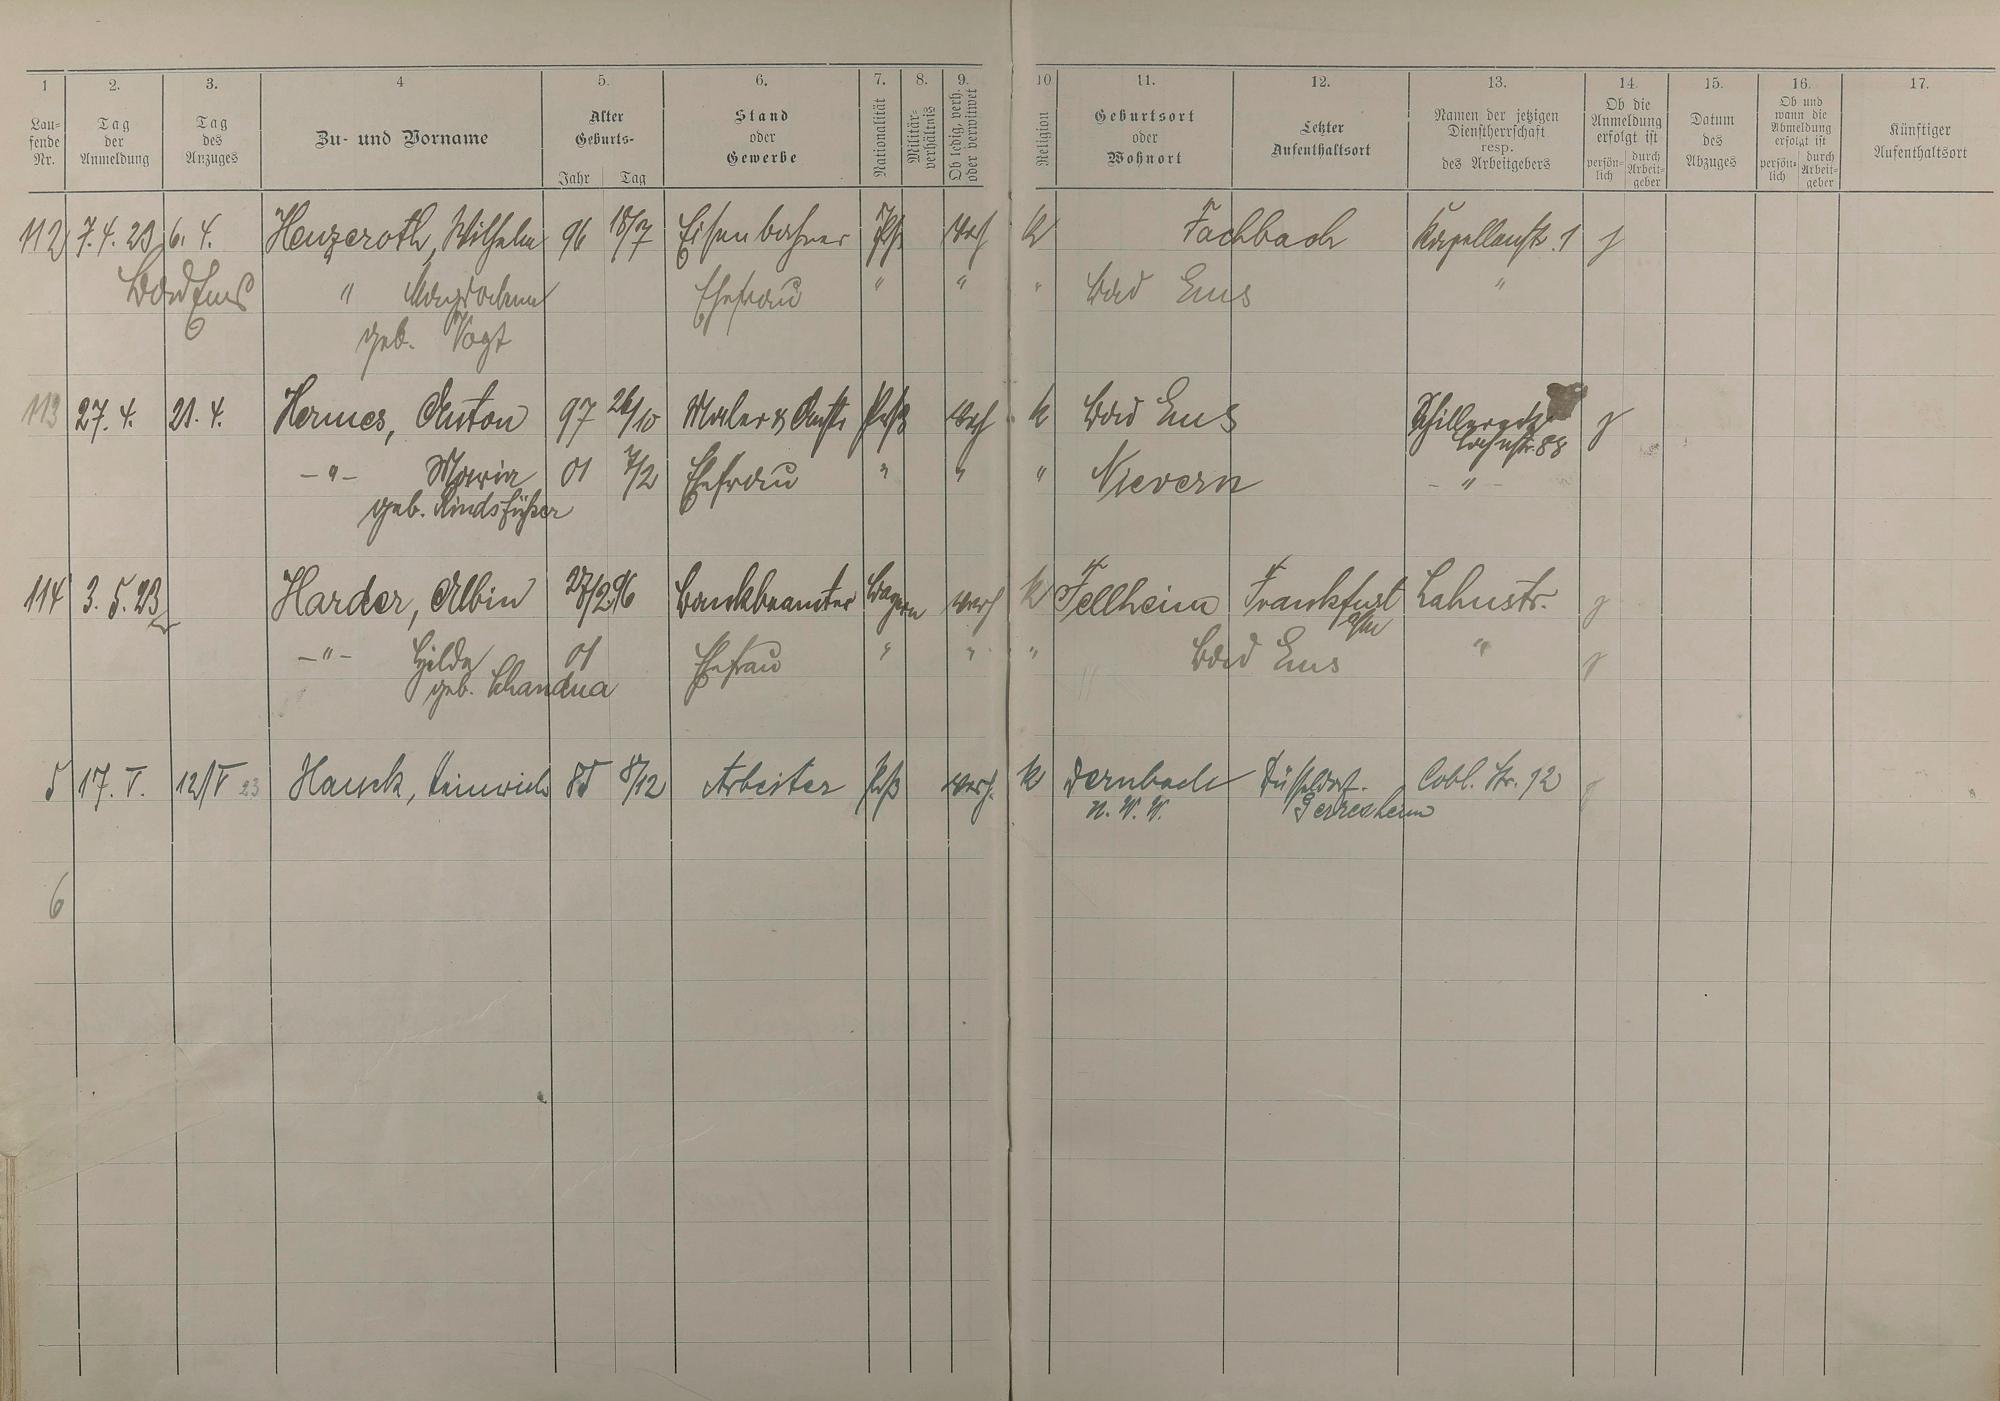 1 2. 3. 4 5. 6. 7. 8. 9. 10 11. 12. 13. 14. 15. 16. 17.
Lau-
fende
Nr.
Tag
der
Anmeldung
Tag
des
Anzuges
Zu- und Vorname
Alter
Geburts-
Jahr Tag
Stand
oder
Gewerbe
Nationalität
Militär-
verhältnis
Ob ledig, verh.
oder verwitwet
Religion
Geburtsort
oder
Wohnort
Letzter
Aufenthaltsort
Namen der jetzigen
Dienstherrschaft
resp.
des Arbeitgebers
Ob die
Anmeldung
erfolgt ist
persön-
lich
durch
Arbeit-
geber
Datum
des
Abzuges
Ob und
wann die
Abmeldung
erfolgt ist
persön-
lich
durch
Arbeit-
geber
Künftiger
Aufenthaltsort
112 7.4.23 6.4. Henzeroth, Wilhelm 96 18/7 Eisenbahner Pß verh k Fachbach Kapellenstr. 1 j
Bad Ems " Magdalena Ehefrau " " " Bad Ems "
geb. Vogt
113 27.4. 21.4. Hermes, Anton 97 26/10 Maler & Anstr. Prß verh k Bad Ems j
Lahnstr. 88
-"- Maria 01 7/2 Ehefrau " " " Nievern -"-
geb. Rindsfüßer
114 3.5.23 Harder, Albin 27/2 96 Bankbeamter Bayern verh k Fellheim Frankfurt Lahnstr. j
a/M
-"- Hilda 01 Ehefrau " " " Bad Ems " j
geb.
5 17.V. 12/V 23 Hauck, Heinrich 85 8/12 Arbeiter Prß verh. k Dernbach Düsseldorf. Cobl. Str. 12 j
N. W. W. Gerresheim
6